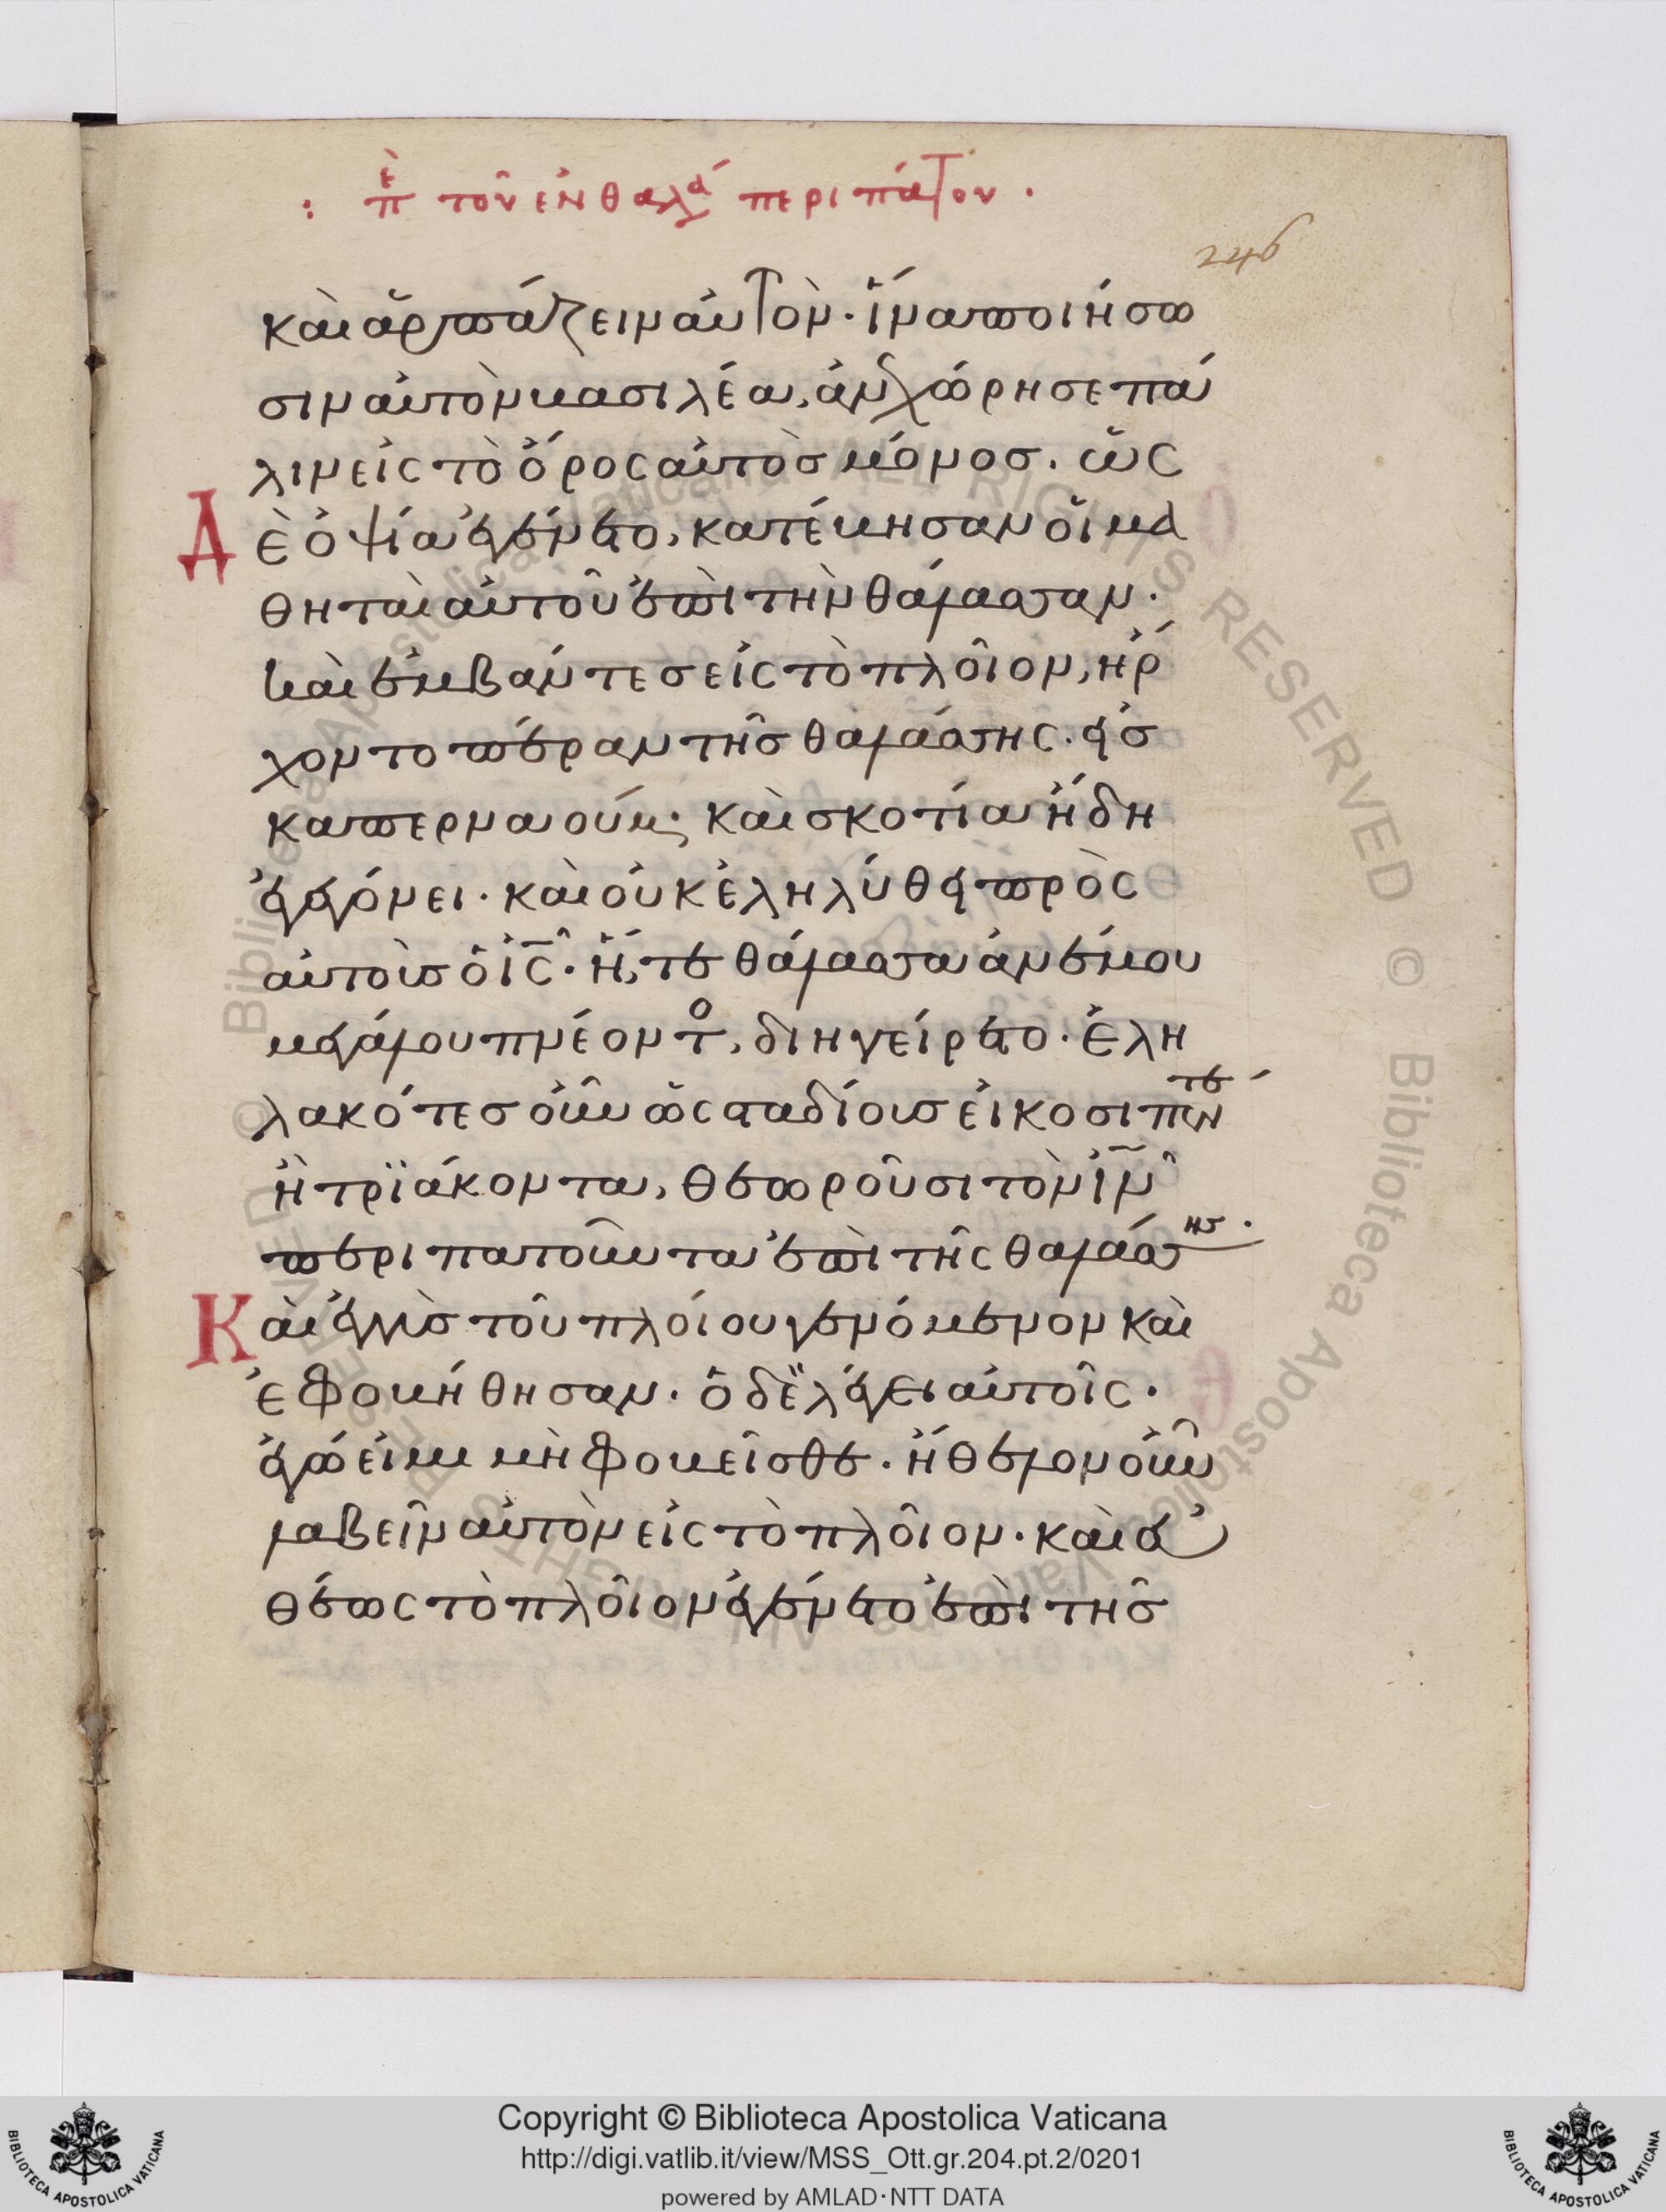 : π ὲ τοῦ ἐν θαλά περιπάτου .
246
καὶ ἁρπάζειν αὐτὸν· ἵνα ποιήσω
σιν αὐτὸν βασιλέα, ἀνεχώρησε πά
λιν εἰς τὸ ὄρος αὐτὸς μόνος. ὡς
Δὲ ὀψία ἐγένετο, κατέβησαν οἱ μα
θηταὶ αὐτοῦ ἐπὶ τὴν θάλασσαν.
καὶ ἐμβάντες εἰς τὸ πλοῖον, ἤρ
χοντο πέραν τῆς θαλάσσης· εἰς
καπερναούμ· καὶ σκοτία ἤδη
ἐγεγόνει· καὶ οὐκ ἐληλύθει πρὸς
αὐτοὺς ὁ ἰς̄· ἥ, τε θάλασσα ἀνέμου
μεγάλου πνέοντο, διηγείρετο· ἐλη
λακότες οὖν ὡς σταδίους εἴκοσι πέντε
ἢ τριάκοντα, θεωροῦσι τὸν ἰν̄
περιπατοῦντα ἐπὶ τῆς θαλάσσης.
Καὶ ἐγγὺς τοῦ πλοίου γενόμενον καὶ
ἐφοβήθησαν· ὁ δὲ λέγει αὐτοῖς·
ἐγώ εἰμι μὴ φοβεῖσθε· ἤθελον οὖν
λαβεῖν αὐτὸν εἰς τὸ πλοῖον· καὶ εὐ
θέως τὸ πλοῖον ἐγένετο ἐπὶ τῆς
Copyright © Biblioteca Apostolica Vaticana
http://digi.vatlib.it/view/MSS_Ott.gr.204.pt.2/0201
powered by AMLAD·NTT DATA
BIBLIOTECA APOSTOLICA VATICANA
BIBLIOTECA APOSTOLICA VATICANA